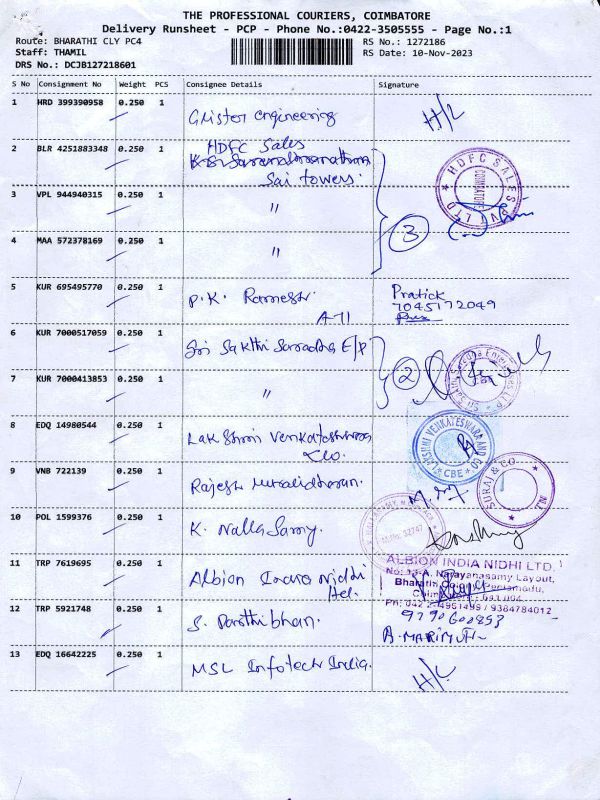 THE PROFESSIONAL COURIERS, COIMBATORE
Delivery Runsheet - PCP - Phone No.:0422-3505555 - Page No.:1
Route: BHARATHI CLY PC4
RS No.: 1272186
Staff: THAMIL
RS Date: 10-Nov-2023
DRS No.: DCJB127218601
S No Consignment No Weight PCS Consignee Details Signature
1 HRD 399390958 0.250 1 Glister engineering H/L
2 BLR 4251883348 0.250 1 HDFC Sales
Sai towers.
HDFC SALES PVT LTD COIMBATORE
3 VPL 944940315 0.250 1 "
3
4 MAA 572378169 0.250 1 "
5 KUR 695495770 0.250 1 P.K. Ramesh. Pratick
7045172049
A-71
6 KUR 7000517059 0.250 1 Sri Sakthi Saradha E/P
2
7 KUR 7000413853 0.250 1 "
8 EDQ 14980544 0.250 1 Lakshmi Venkateshwara
&Co.
LAKSHMI VENKATESWARA AND CO CBE
9 VNB 722139 0.250 1 Rajesh Muralidharan.
SURAJ & CO.
10 POL 1599376 0.250 1 K. Nalla Samy.
11 TRP 7619695 0.250 1 Albion India Nidhi
ALBION INDIA NIDHI LTD.
Narayanasamy Layout,
Ph: 0422-4951499 / 9384784012
12 TRP 5921748 0.250 1 S. Parthibhan.
9790600853
A. MARIMUTH
13 EDQ 16642225 0.250 1 MSL Infotech India. H/L